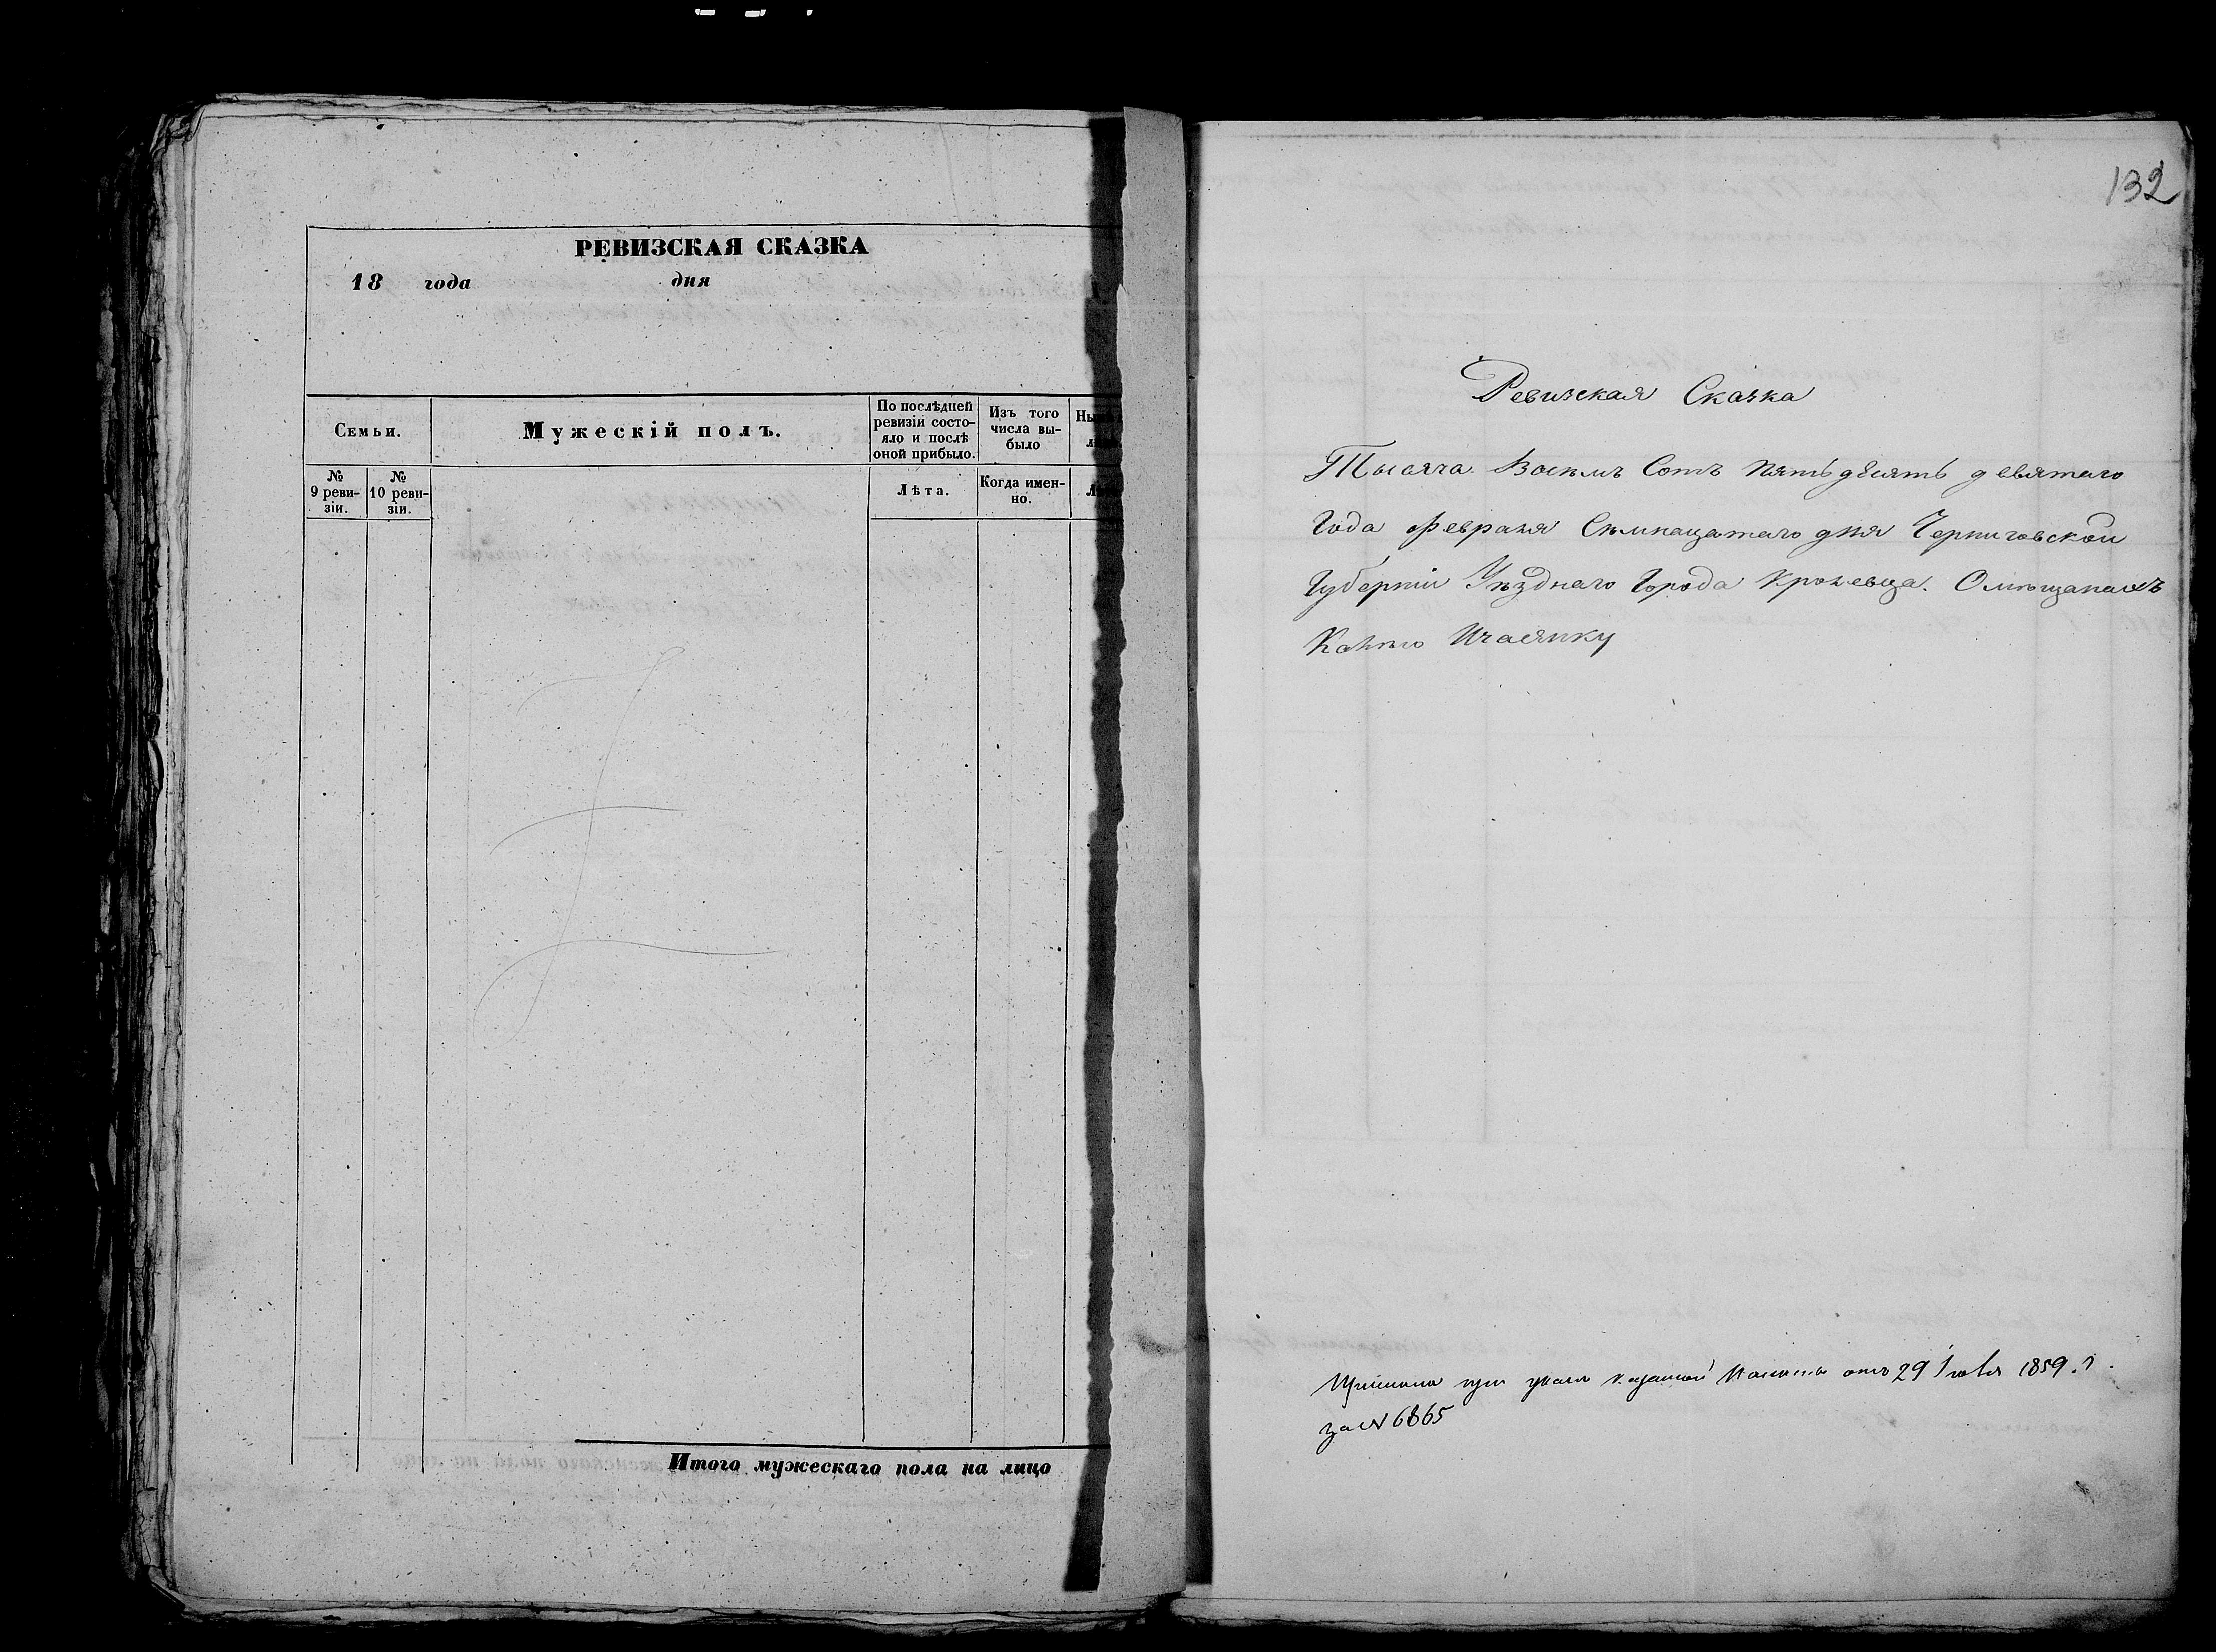 РЕВИЗСКАЯ СКАЗКА
18 года дня 1
Семьи.
Мужескій полъ.
По послѣдней
ревизіи состо-
яло и послѣ
оной прибыло.
Изъ того
числа вы-
было
Ны
№
9 реви-
зіи.
№
10 реви-
зіи.
Лѣта.
Когда имен-
но.
Л
Итого мужескаго пола на лицо
132
Ревизская Сказка
Тысяча Восемъ Сотъ пятьдесять девятаго
Года февраля Семнацатаго дня Черниговской
Губерніи Уѣзднаго Города Кролевца. Омѣщанахъ
Ичаянку
при указѣ казенной палаты отъ 29 Іюля 1859. г.
за № 6865